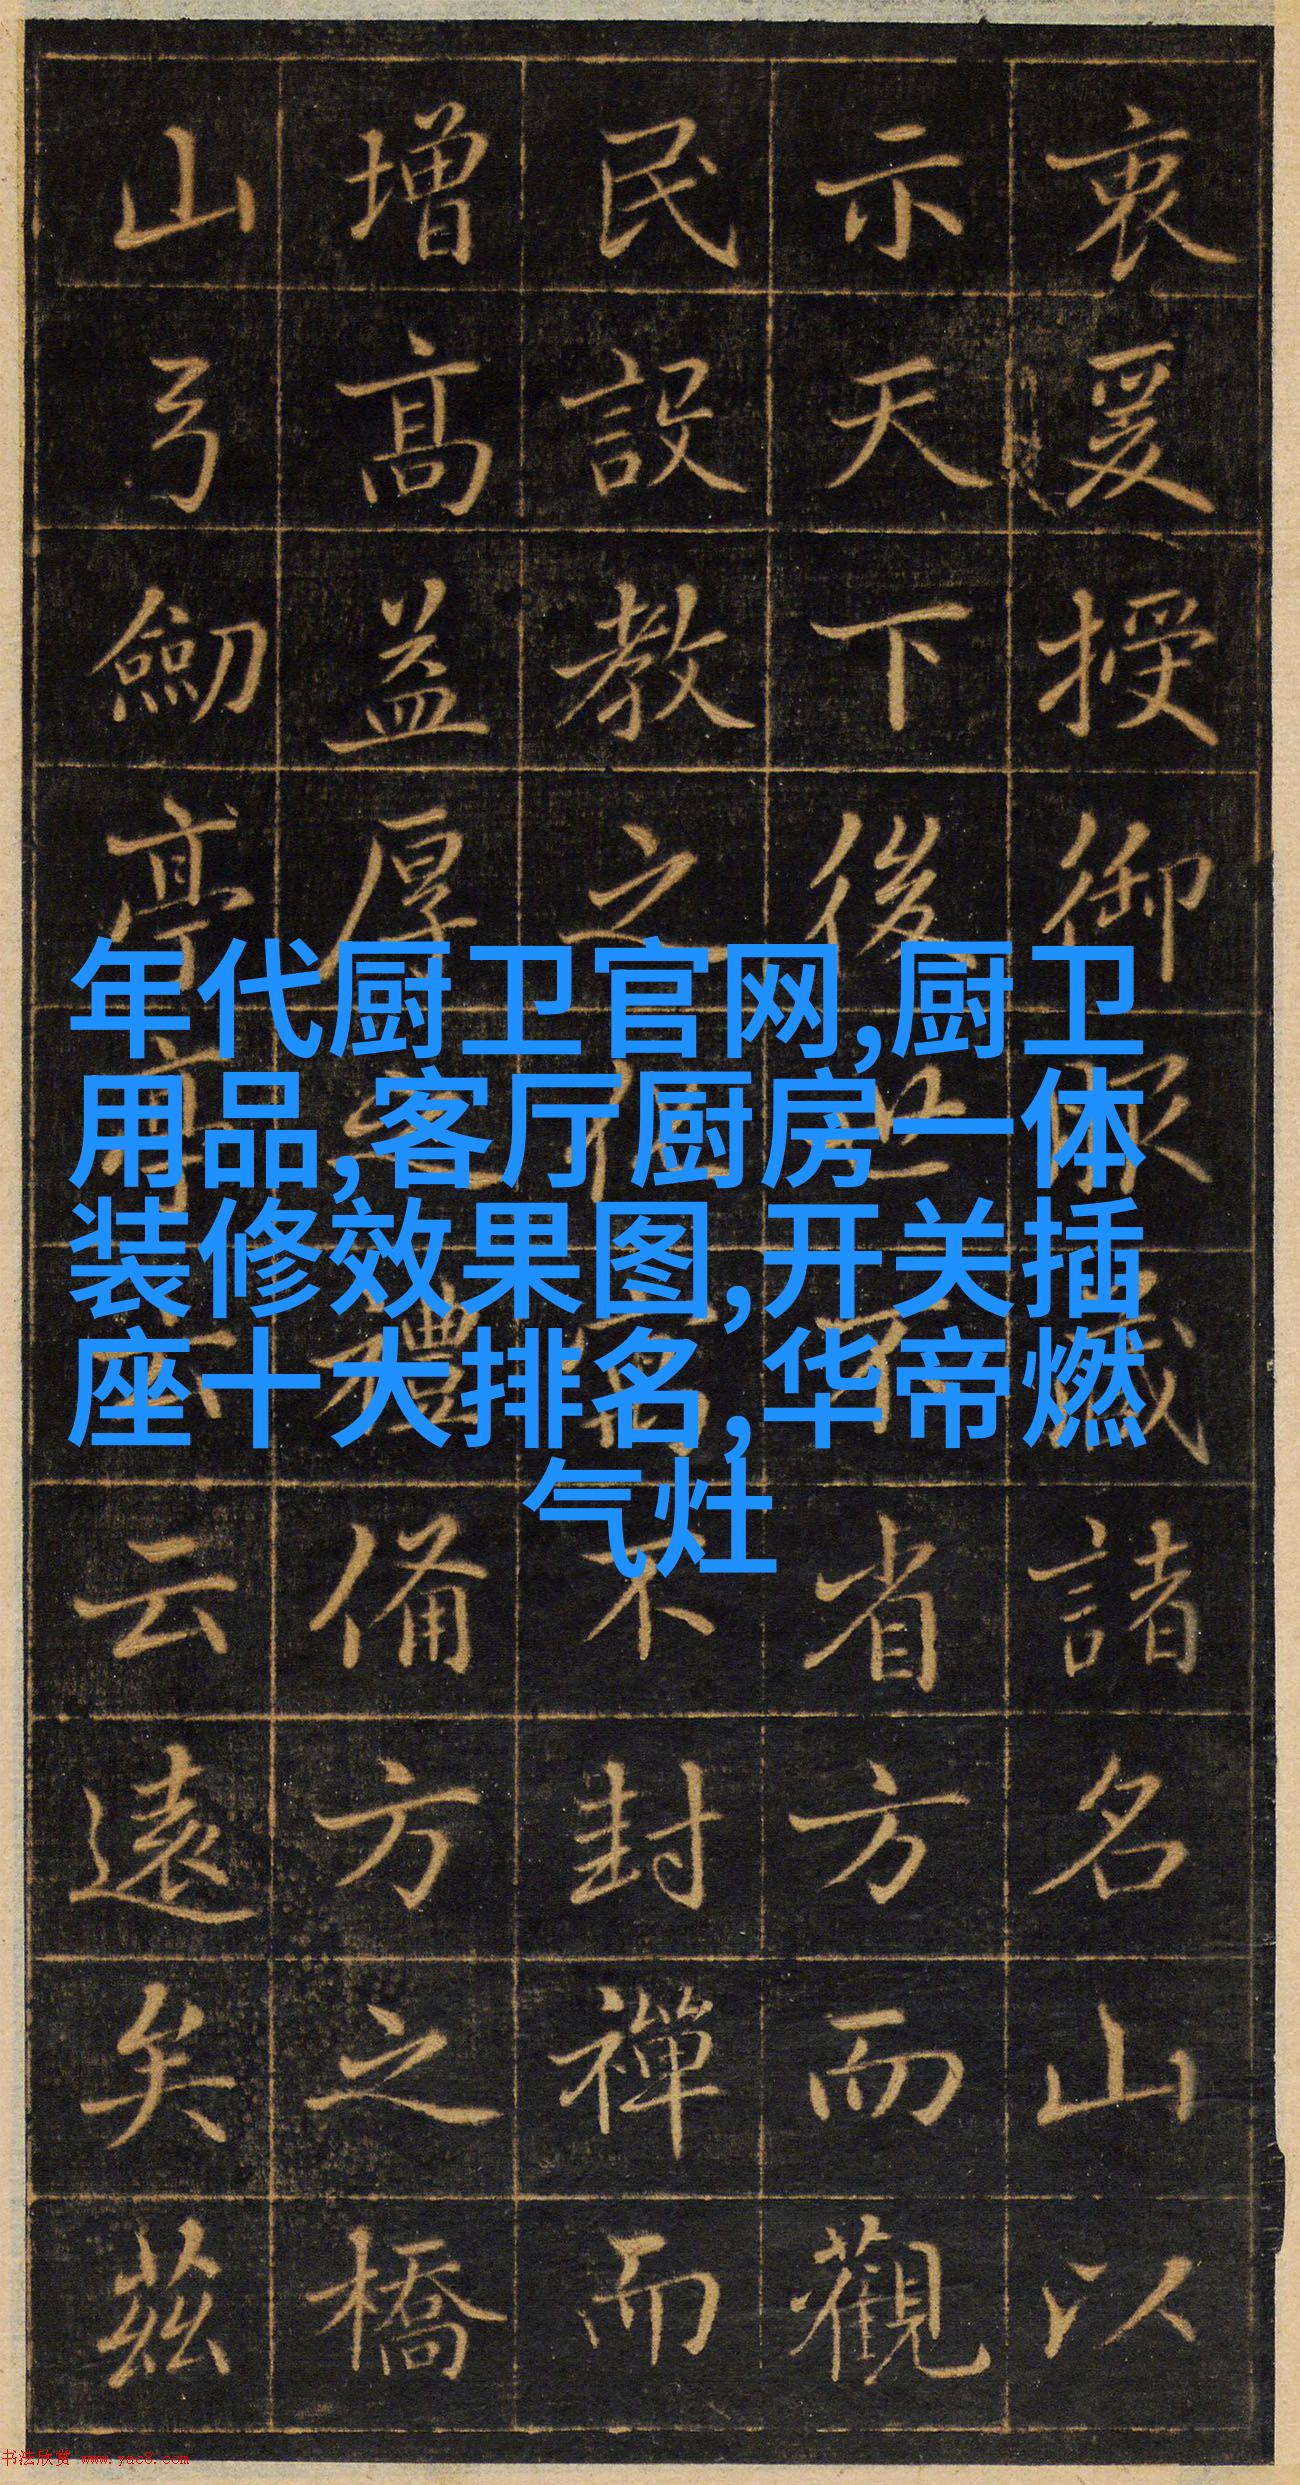 年代厨卫官网,厨卫
用品,客厅厨房一体
装修效果图,开关插
座十大排名,华帝燃
气灶
衷爰授御藏諸名山以
示天下後世省方而觀
民設教之不封禪而
增高益厚之禮備方之橋
山弓劒亭亭云云遠矣茲
书法欣赏 www.yac8.com